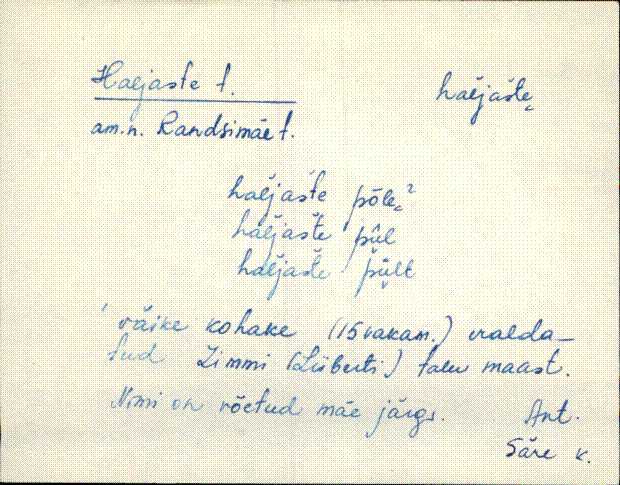 Haljaste t. haĺjašte
am.n. Randsimäe t.
haĺjašte põle
haĺjašte pül
haĺjašte pült
väike kohake (15 vakam.) eralda-
tud Zimmi (Lüberti) talu maast.
Nimi on võetud mäe järgi. Ant.
Säre k.